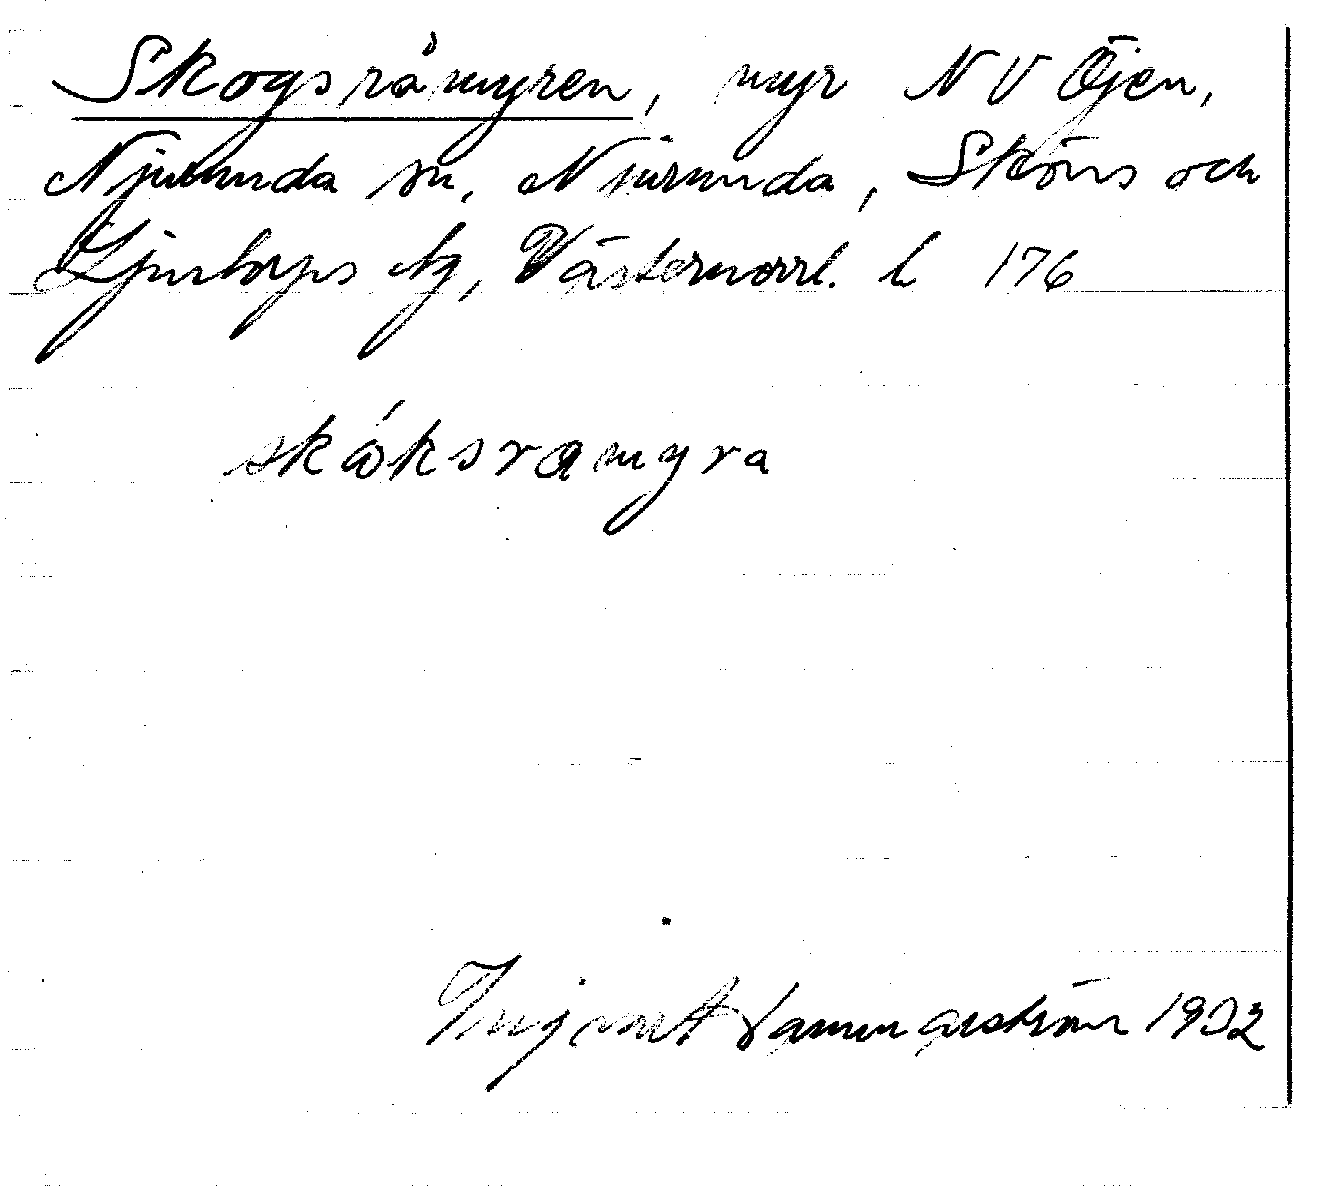 Skogsråmyren, myr NV Öjen,
Njurunda sn, Njurunda, Sköns och
Ljustorps tg, Västernorrl. l 176
skóksramyra
Ingevert 1932